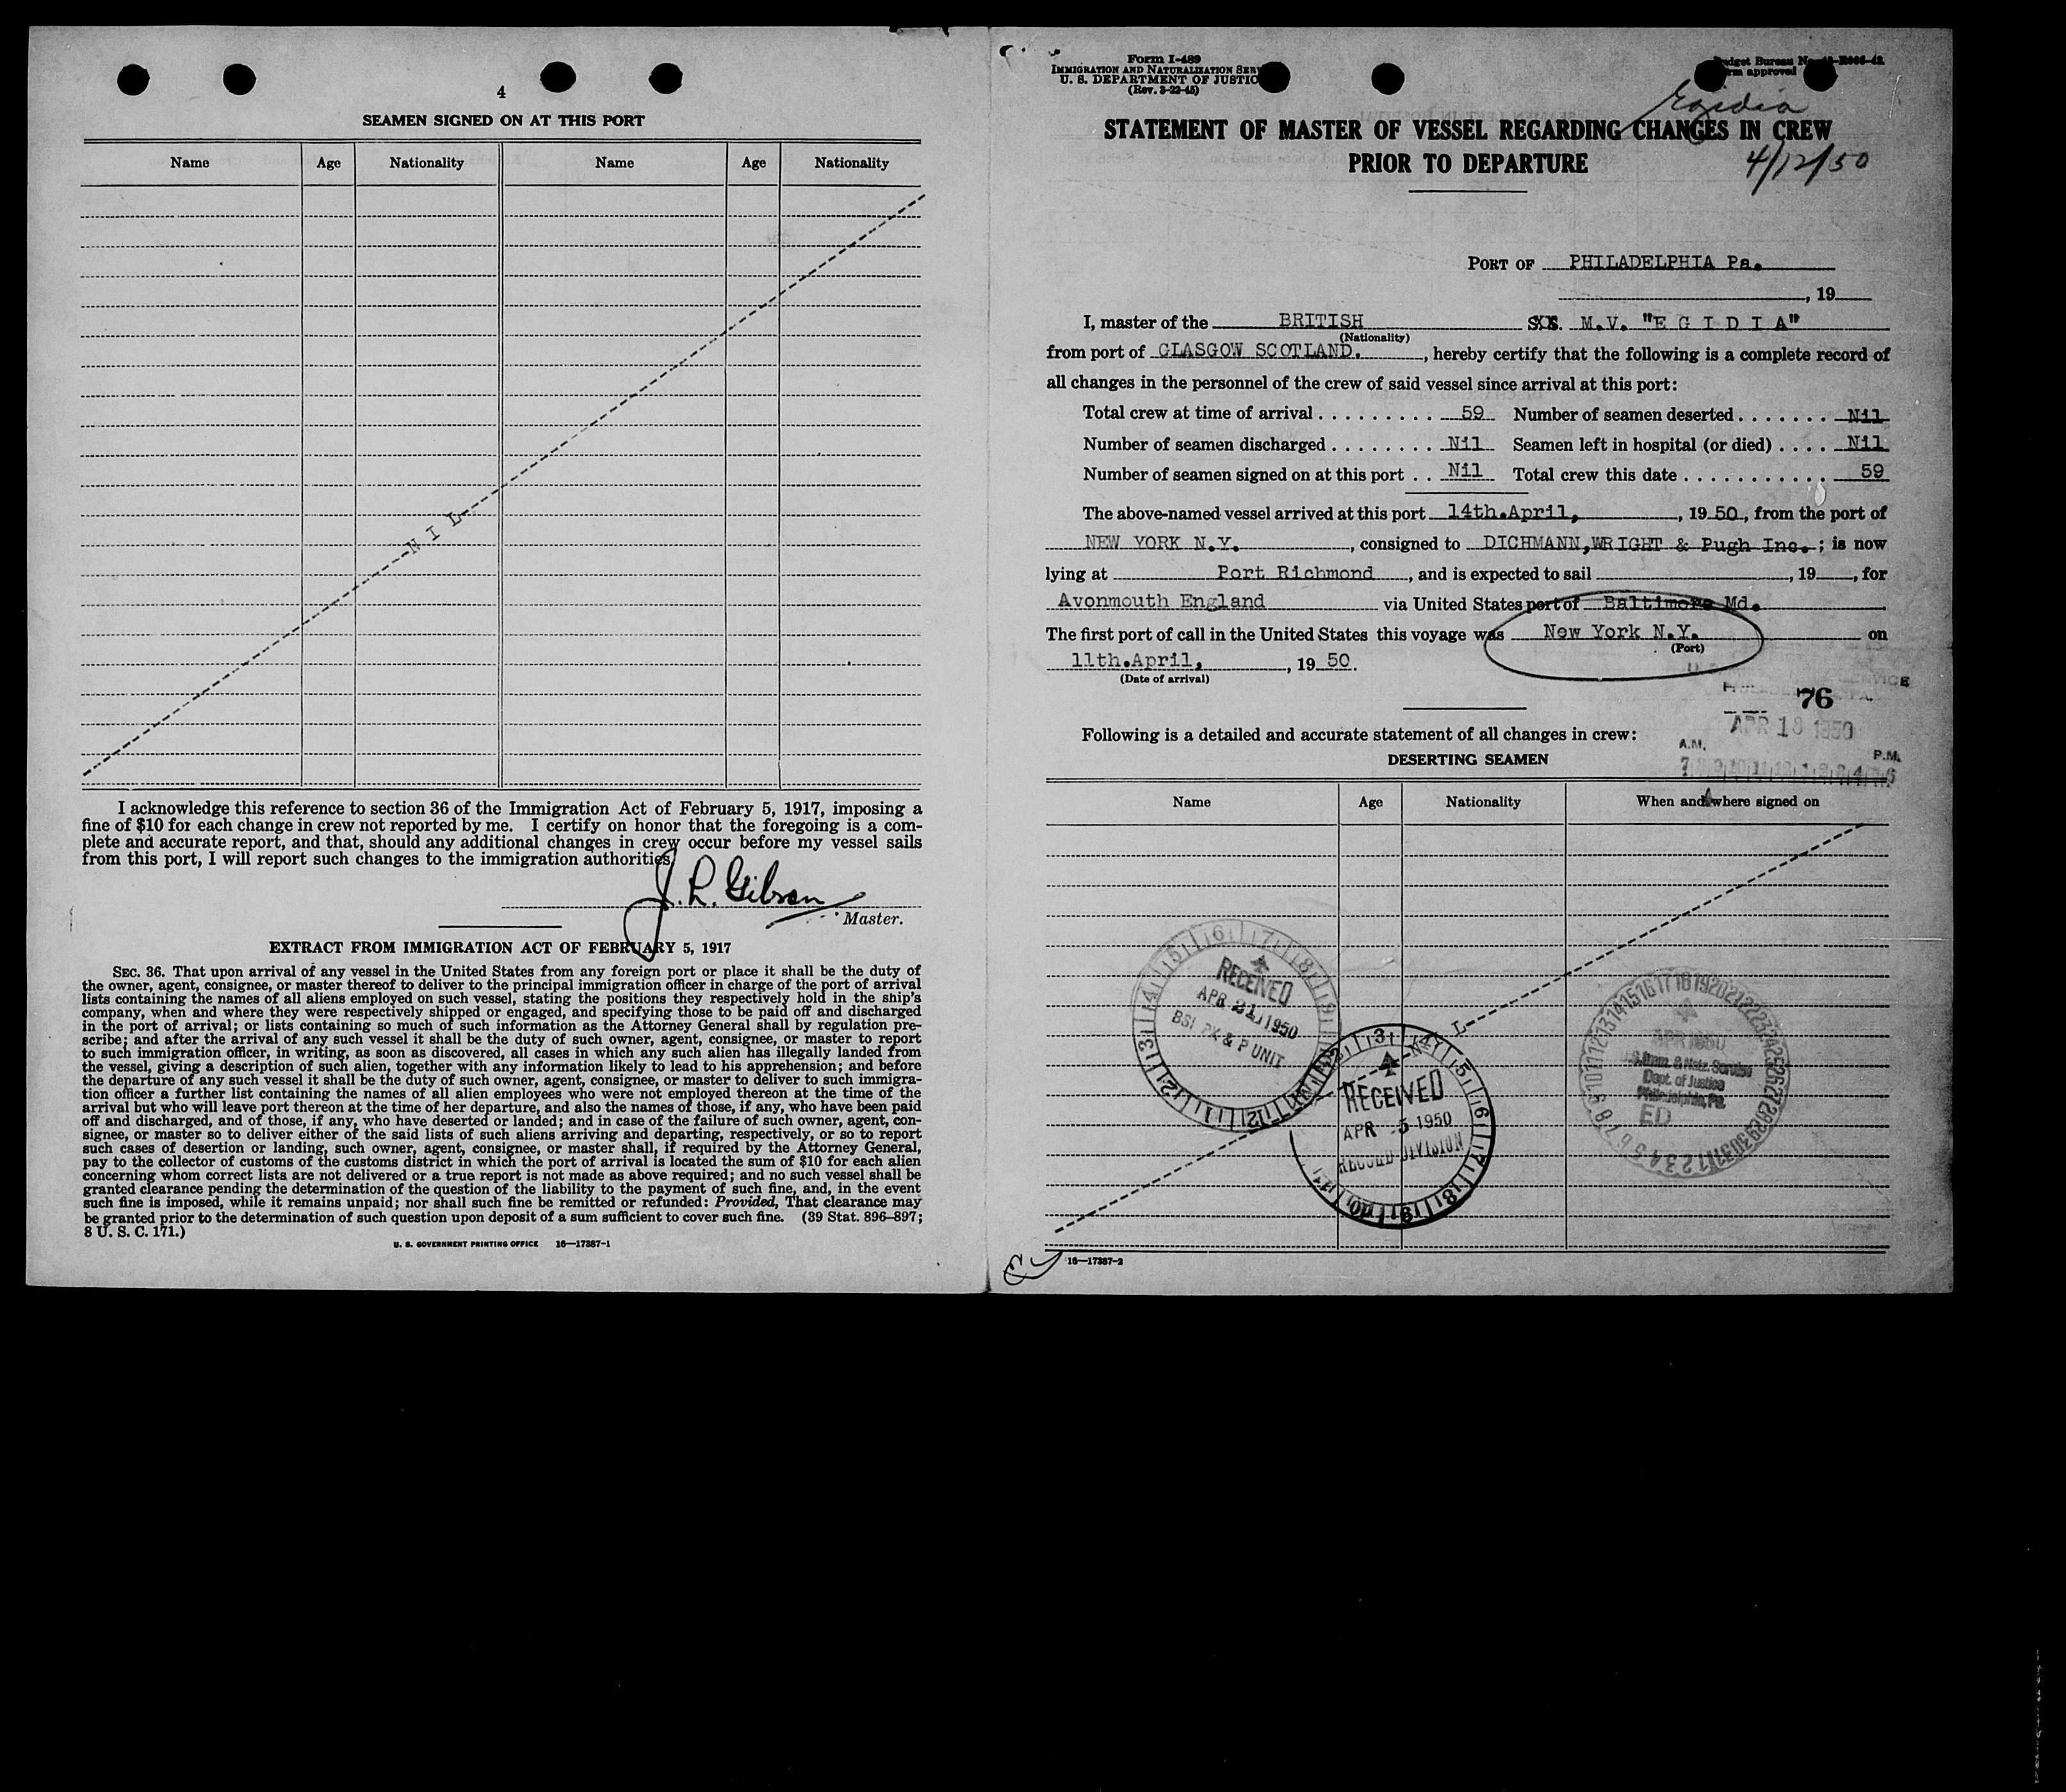 4
SEAMEN SIGNED ON AT THIS PORT
Name Age Nationality Name Age Nationality
N I L
I acknowledge this reference to section 36 of the Immigration Act of February 5, 1917, imposing a
fine of $10 for each change in crew not reported by me. I certify on honor that the foregoing is a com-
plete and accurate report, and that, should any additional changes in crew occur before my vessel sails
from this port, I will report such changes to the immigration authorities.
J. R. Gibson
Master.
EXTRACT FROM IMMIGRATION ACT OF FEBRUARY 5, 1917
SEC. 36. That upon arrival of any vessel in the United States from any foreign port or place it shall be the duty of
the owner, agent, consignee, or master thereof to deliver to the principal immigration officer in charge of the port of arrival
lists containing the names of all aliens employed on such vessel, stating the positions they respectively hold in the ship's
company, when and where they were respectively shipped or engaged, and specifying those to be paid off and discharged
in the port of arrival; or lists containing so much of such information as the Attorney General shall by regulation pre-
scribe; and after the arrival of any such vessel it shall be the duty of such owner, agent, consignee, or master to report
to such immigration officer, in writing, as soon as discovered, all cases in which any such alien has illegally landed from
the vessel, giving a description of such alien, together with any information likely to lead to his apprehension; and before
the departure of any such vessel it shall be the duty of such owner, agent, consignee, or master to deliver to such immigra-
tion officer a further list containing the names of all alien employees who were not employed thereon at the time of the
arrival but who will leave port thereon at the time of her departure, and also the names of those, if any, who have been paid
off and discharged, and of those, if any, who have deserted or landed; and in case of the failure of such owner, agent, con-
signee, or master so to deliver either of the said lists of such aliens arriving and departing, respectively, or so to report
such cases of desertion or landing, such owner, agent, consignee, or master shall, if required by the Attorney General,
pay to the collector of customs of the customs district in which the port of arrival is located the sum of $10 for each alien
concerning whom correct lists are not delivered or a true report is not made as above required; and no such vessel shall be
granted clearance pending the determination of the question of the liability to the payment of such fine, and, in the event
such fine is imposed, while it remains unpaid; nor shall such fine be remitted or refunded: Provided, That clearance may
be granted prior to the determination of such question upon deposit of a sum sufficient to cover such fine. (39 Stat. 896–897;
8 U. S. C. 171.)
U. S. GOVERNMENT PRINTING OFFICE 16—17387-1
Form I-489
IMMIGRATION AND NATURALIZATION SER
U. S. DEPARTMENT OF JUSTIC
(Rev. 3-22-45)
Egidia
STATEMENT OF MASTER OF VESSEL REGARDING CHANGES IN CREW
PRIOR TO DEPARTURE
4/12/50
PORT OF PHILADELPHIA Pa.
, 19
I, master of the BRITISH M.V. "E G I D I A"
(Nationality)
from port of GLASGOW SCOTLAND. , hereby certify that the following is a complete record of
all changes in the personnel of the crew of said vessel since arrival at this port:
Total crew at time of arrival . . . . . . . . . 59 Number of seamen deserted . . . . . . . Nil
Number of seamen discharged . . . . . . . . Nil Seamen left in hospital (or died) . . . . Nil
Number of seamen signed on at this port . . Nil Total crew this date . . . . . . . . . . . 59
The above-named vessel arrived at this port 14th.April, , 19 50, from the port of
NEW YORK N.Y. , consigned to DICHMANN,WRIGHT & Pugh Inc. ; is now
lying at Port Richmond , and is expected to sail , 19 , for
Avonmouth England via United States port of Baltimore Md.
The first port of call in the United States this voyage was New York N.Y. on
(Port)
11th.April, , 19 50.
(Date of arrival)
76
APR 18 1950
Following is a detailed and accurate statement of all changes in crew:
A.M. P.M.
DESERTING SEAMEN
Name Age Nationality When and where signed on
RECEIVED
APR 21 1950
BSI PX & P UNIT
RECEIVED
APR -5 1950
RECORD DIVISION
Imm. & Natz. Service
Dept. of Justice
Philadelphia, Pa.
ED
16—17387-2